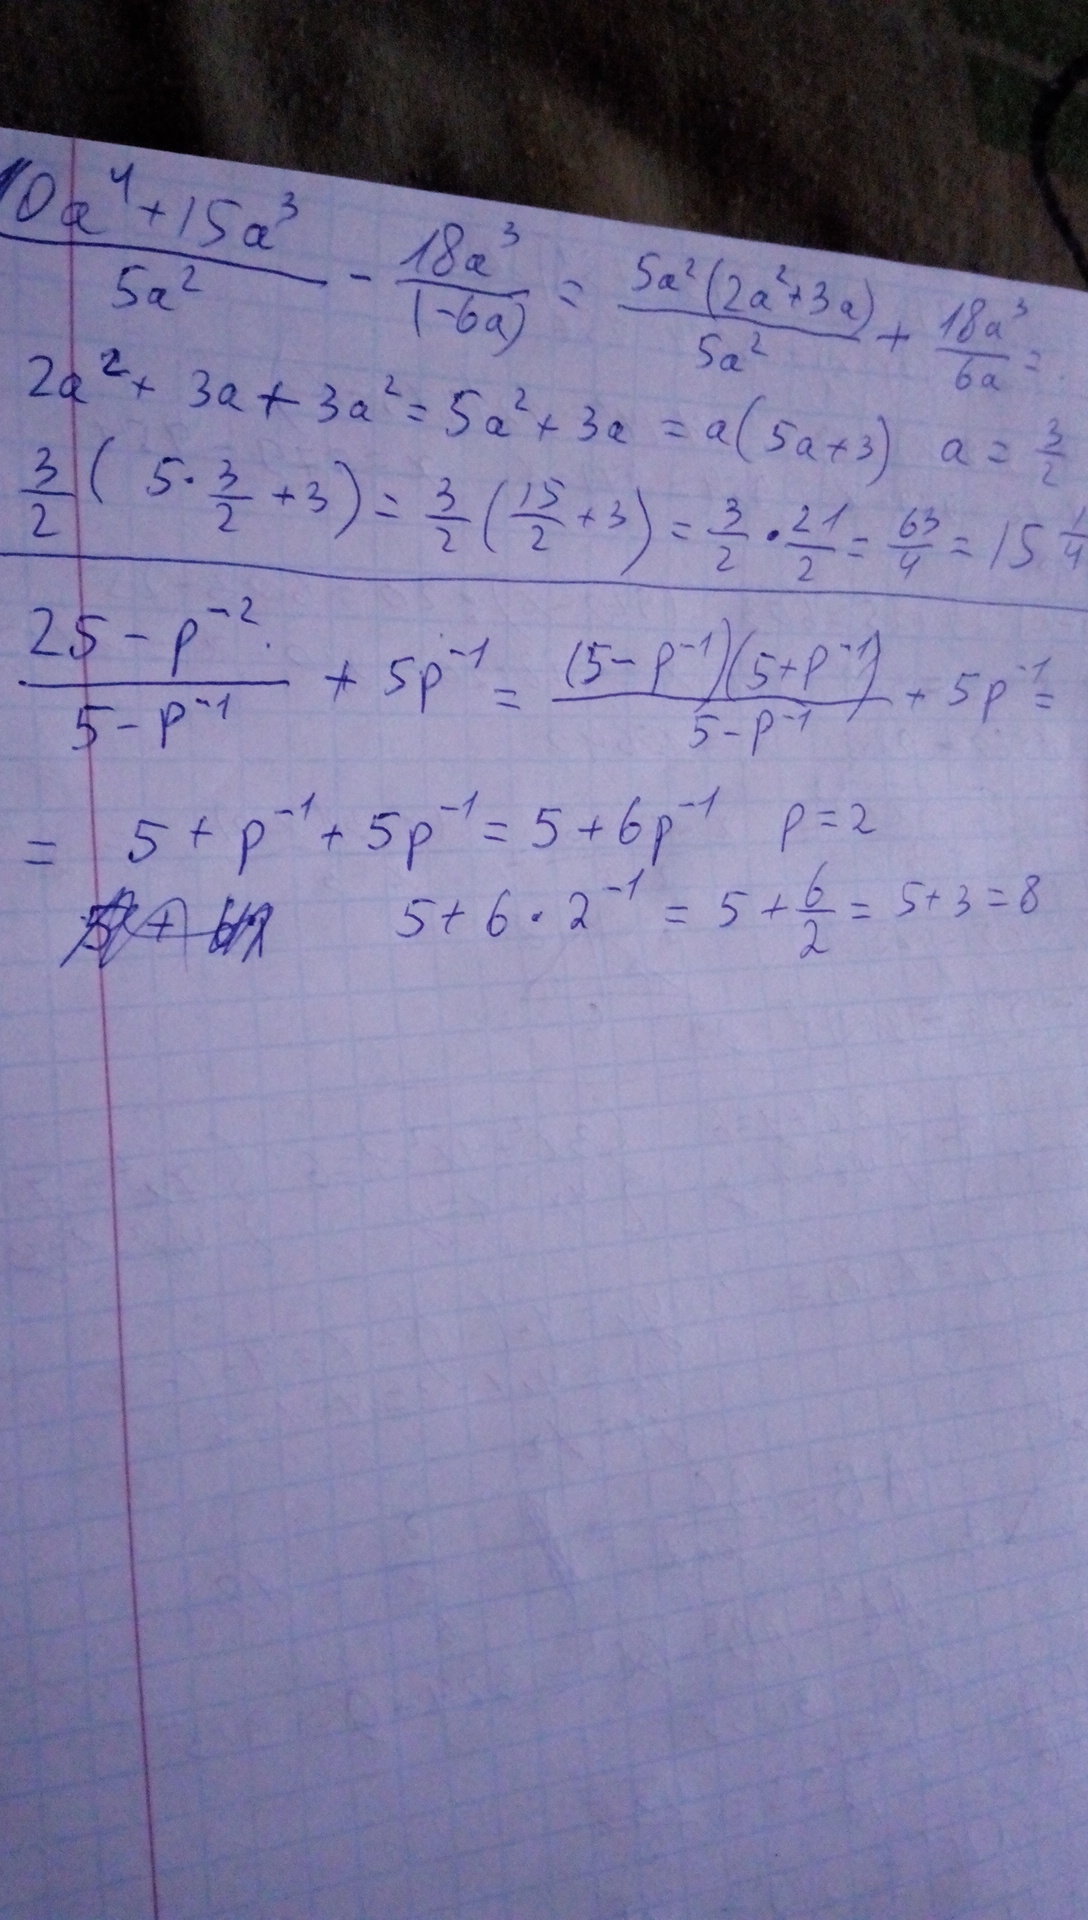 (10a⁴+15a³)/(5a²) - (18a³)/(-6a) = (5a²(2a²+3a))/(5a²) + (18a³)/(6a) =
2a² + 3a + 3a² = 5a² + 3a = a(5a+3) a = 3/2
3/2 ( 5·3/2 + 3) = 3/2 (15/2 + 3) = 3/2 · 21/2 = 63/4 = 15 1/4
(25 - p⁻²)/(5 - p⁻¹) + 5p⁻¹ = ((5 - p⁻¹)(5+p⁻¹))/(5 - p⁻¹) + 5p⁻¹ =
= 5 + p⁻¹ + 5p⁻¹ = 5 + 6p⁻¹ p = 2
5 + 6 · 2⁻¹ = 5 + 6/2 = 5 + 3 = 8